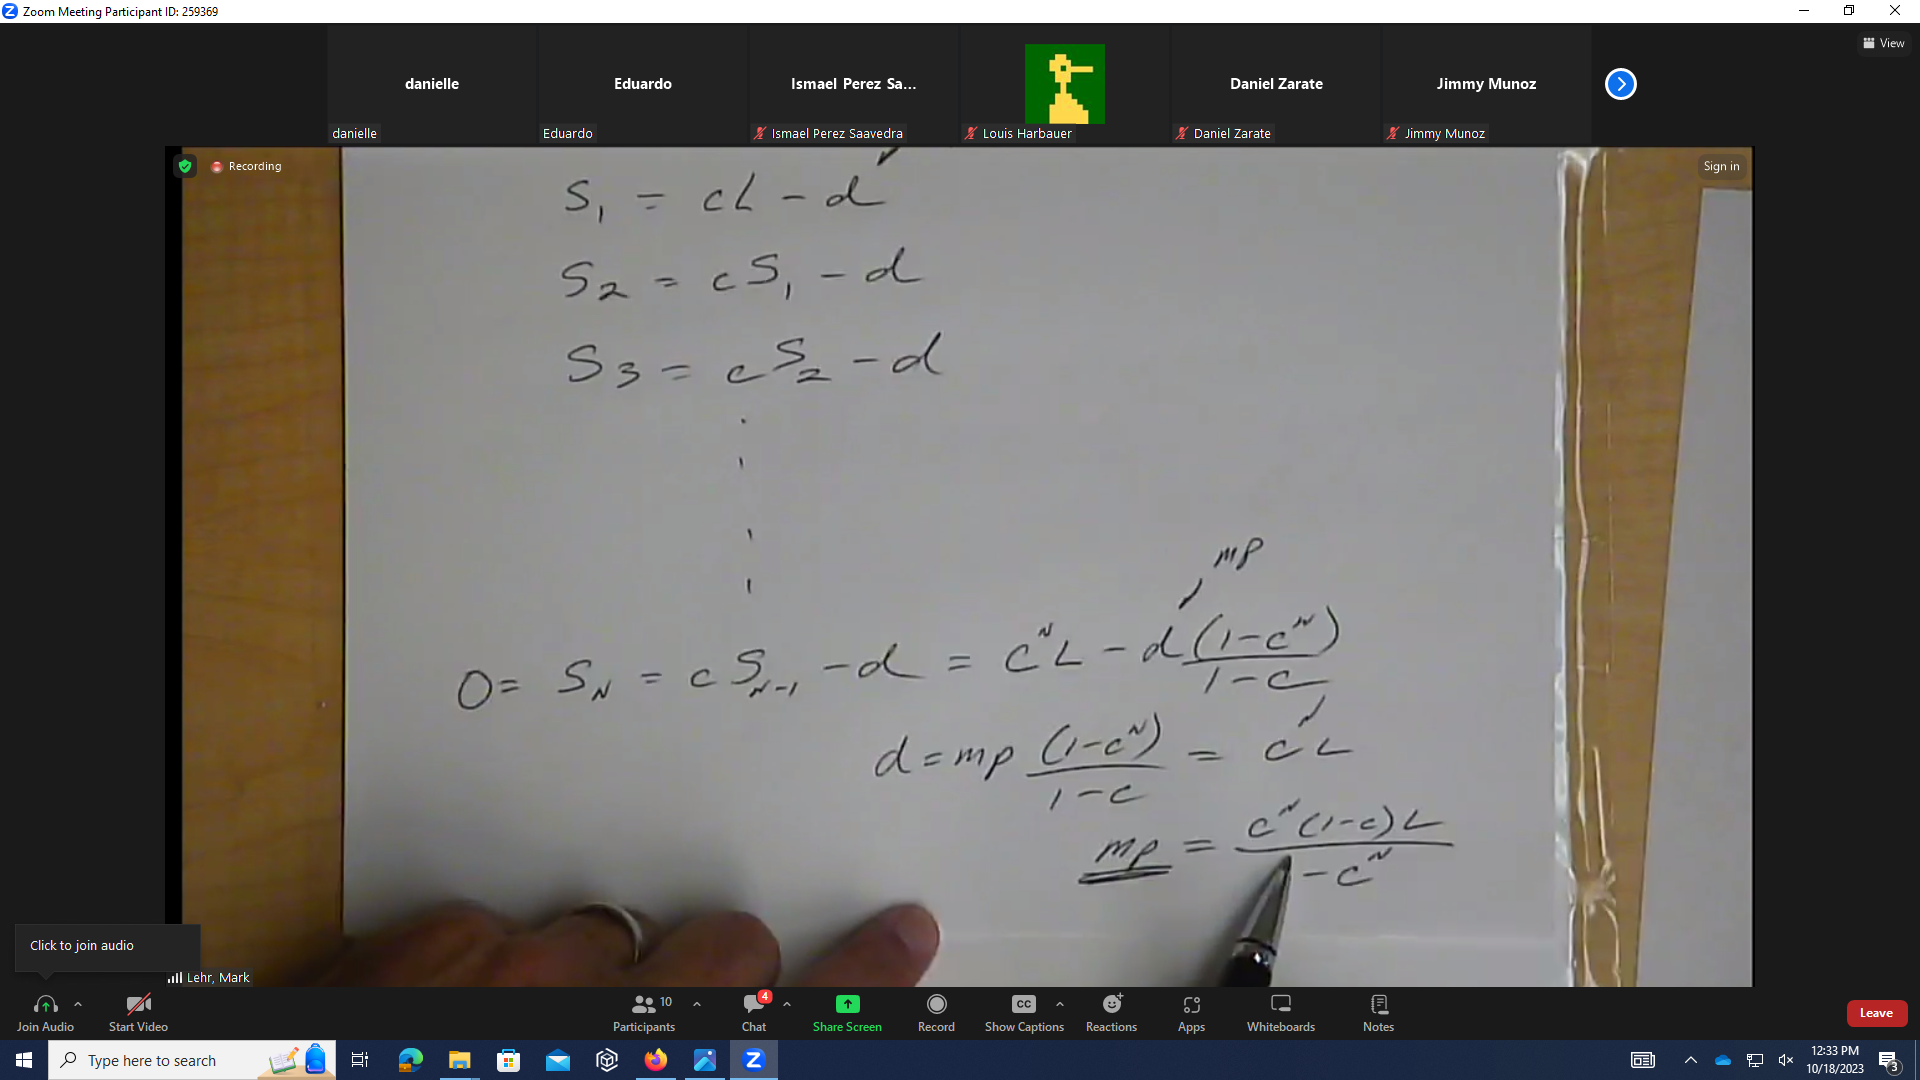 Zoom Meeting Participant ID: 259369
View
danielle
Eduardo
Ismael Perez Sa...
Daniel Zarate
Jimmy Munoz
danielle
Eduardo
Ismael Perez Saavedra
Louis Harbauer
Daniel Zarate
Jimmy Munoz
Recording
Sign in
S₁ = cL - d
S₂ = cS₁ - d
S₃ = cS₂ - d
mp
0 = S_N = cS_{N-1} - d = c^N L - d (1-c^N)/(1-c)
d = mp (1-c^N)/(1-c) = c^N L
mp = c^N (1-c) L / (1-c^N)
Click to join audio
Lehr, Mark
Join Audio
Start Video
Participants 10
Chat 4
Share Screen
Record
CC
Show Captions
Reactions
Apps
Whiteboards
Notes
Leave
Type here to search
12:33 PM
10/18/2023
3